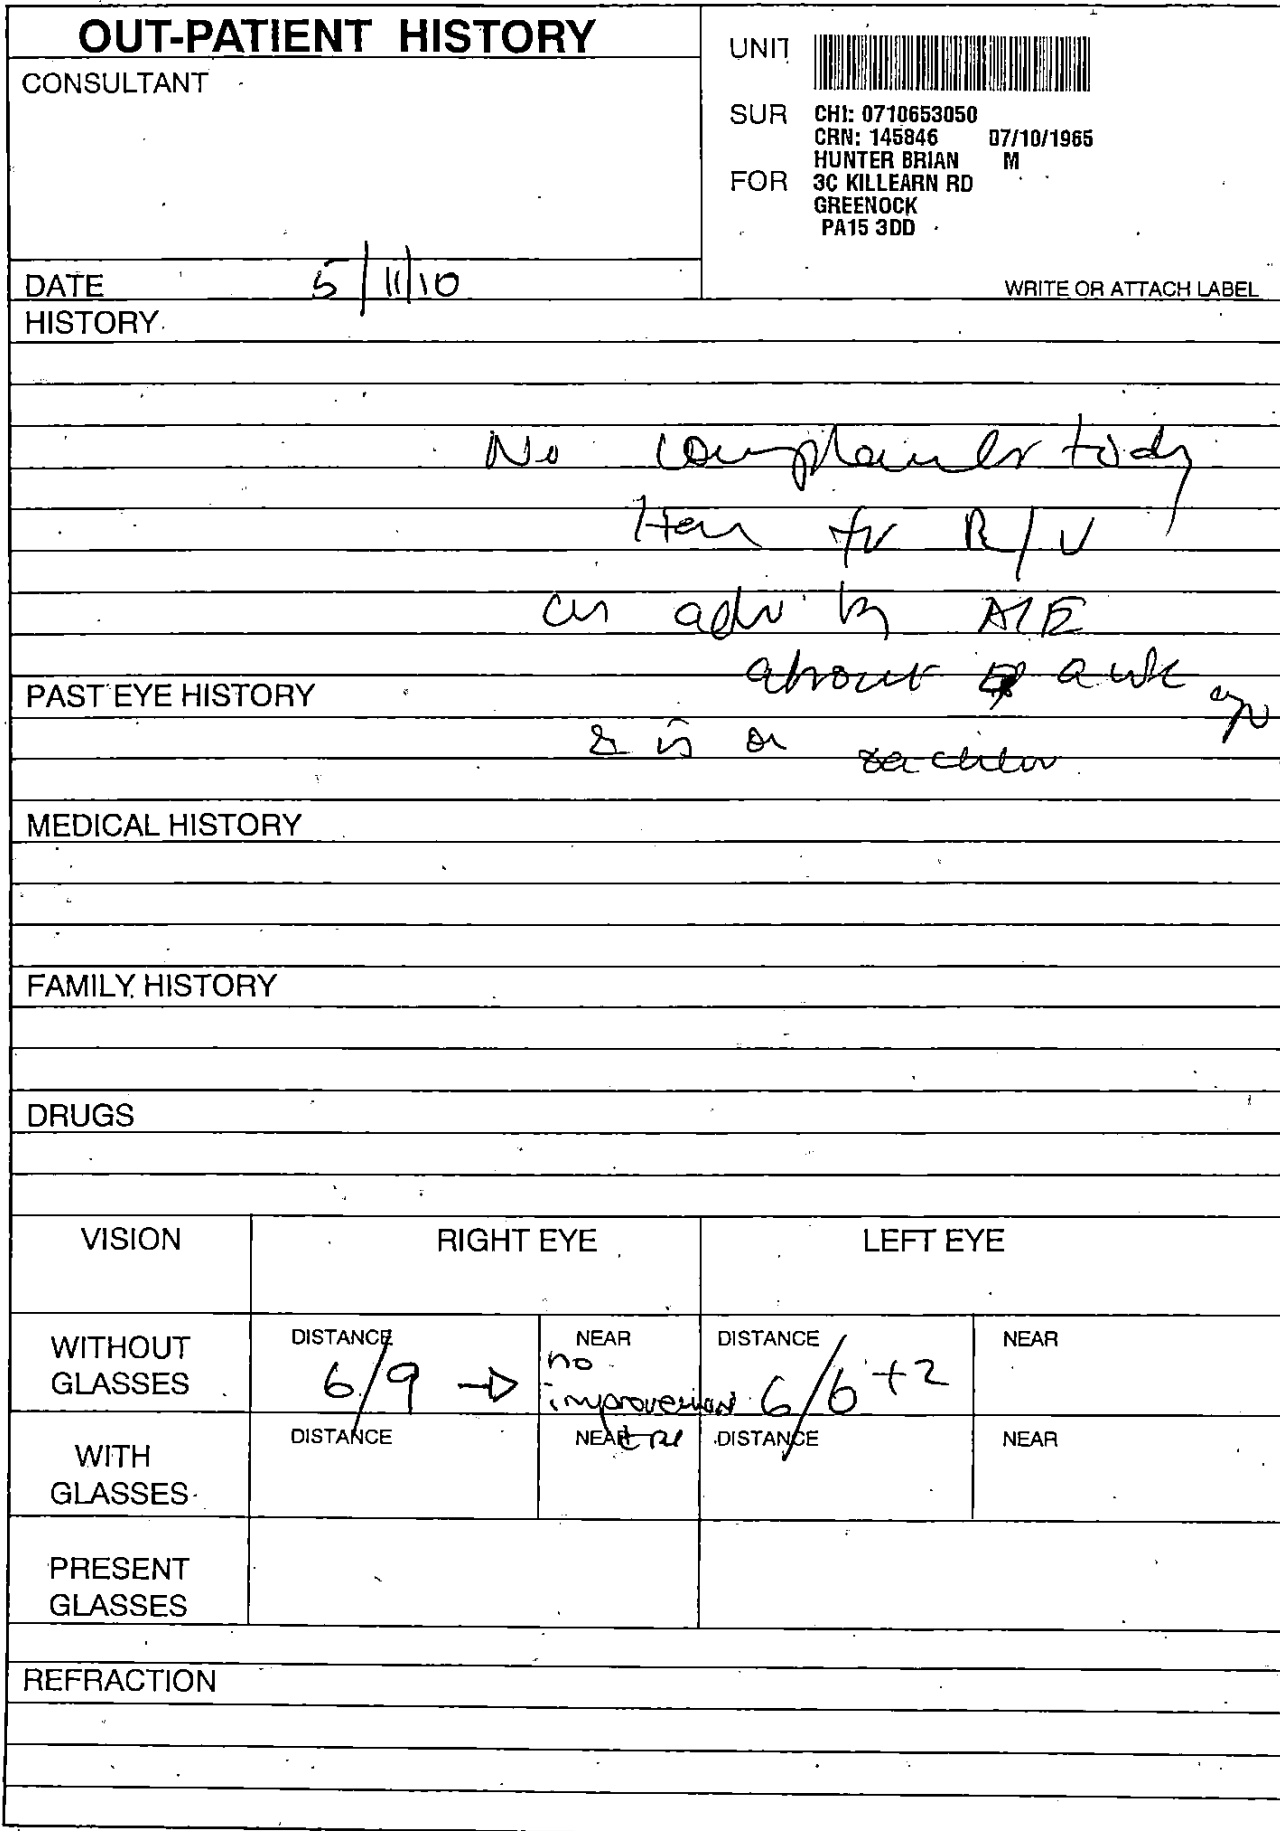 OUT-PATIENT HISTORY
CONSULTANT
UNIT
SUR
FOR
CHI: 0710653050
CRN: 145846 07/10/1965
HUNTER BRIAN M
3C KILLEARN RD
GREENOCK
PA15 3DD
WRITE OR ATTACH LABEL
DATE 5/11/10
HISTORY
No complaints today
Here for R/V
as adv by A/E
about a wk ago
PAST EYE HISTORY
& is on
MEDICAL HISTORY
FAMILY HISTORY
DRUGS
VISION RIGHT EYE LEFT EYE
WITHOUT GLASSES
DISTANCE NEAR DISTANCE NEAR
6/9 → no improvement 6/6 +2
WITH GLASSES
DISTANCE NEAR DISTANCE NEAR
PRESENT GLASSES
REFRACTION